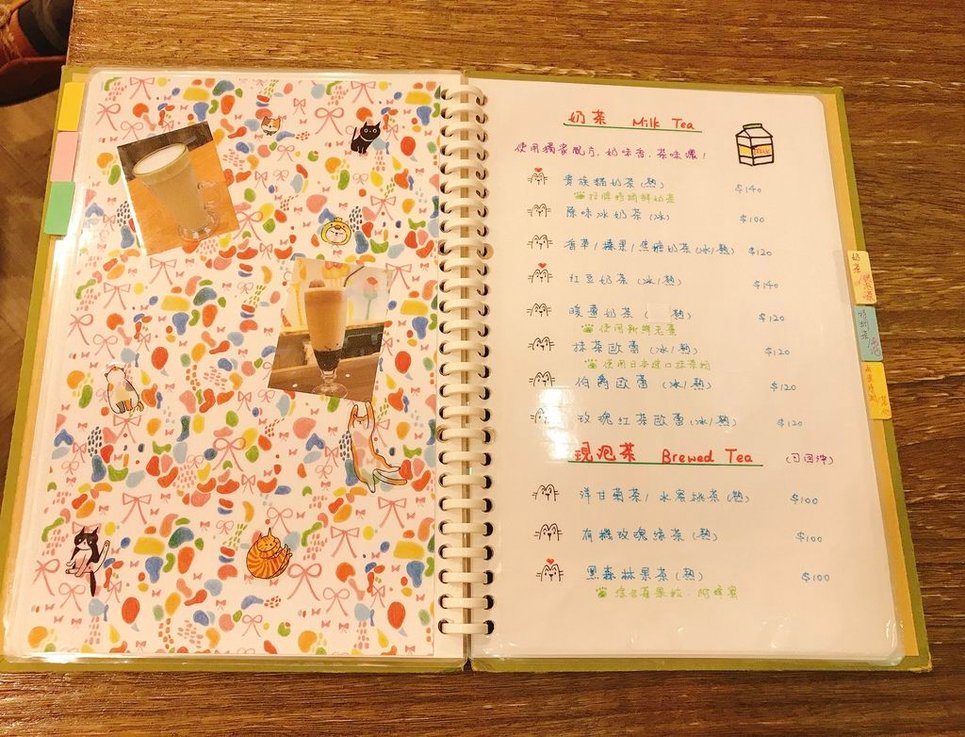 奶茶 Milk Tea
使用獨家配方，奶味香，茶味濃！
MILK
貴族貓奶茶(熱) $140
原味冰奶茶(冰) $100
榛果/焦糖奶茶(冰/熱) $120
紅豆奶茶(冰/熱) $140
暖薑奶茶( 熱) $120
使用新鮮老薑
抹茶歐蕾(冰/熱) $120
使用日本進口抹茶粉
伯爵歐蕾(冰/熱) $120
玫瑰紅茶歐蕾(冰/熱) $120
現泡茶 Brewed Tea (可回沖)
洋甘菊茶/水蜜桃茶(熱) $100
有機玫瑰綠茶(熱) $100
黑森林果茶(熱) $100
奶茶